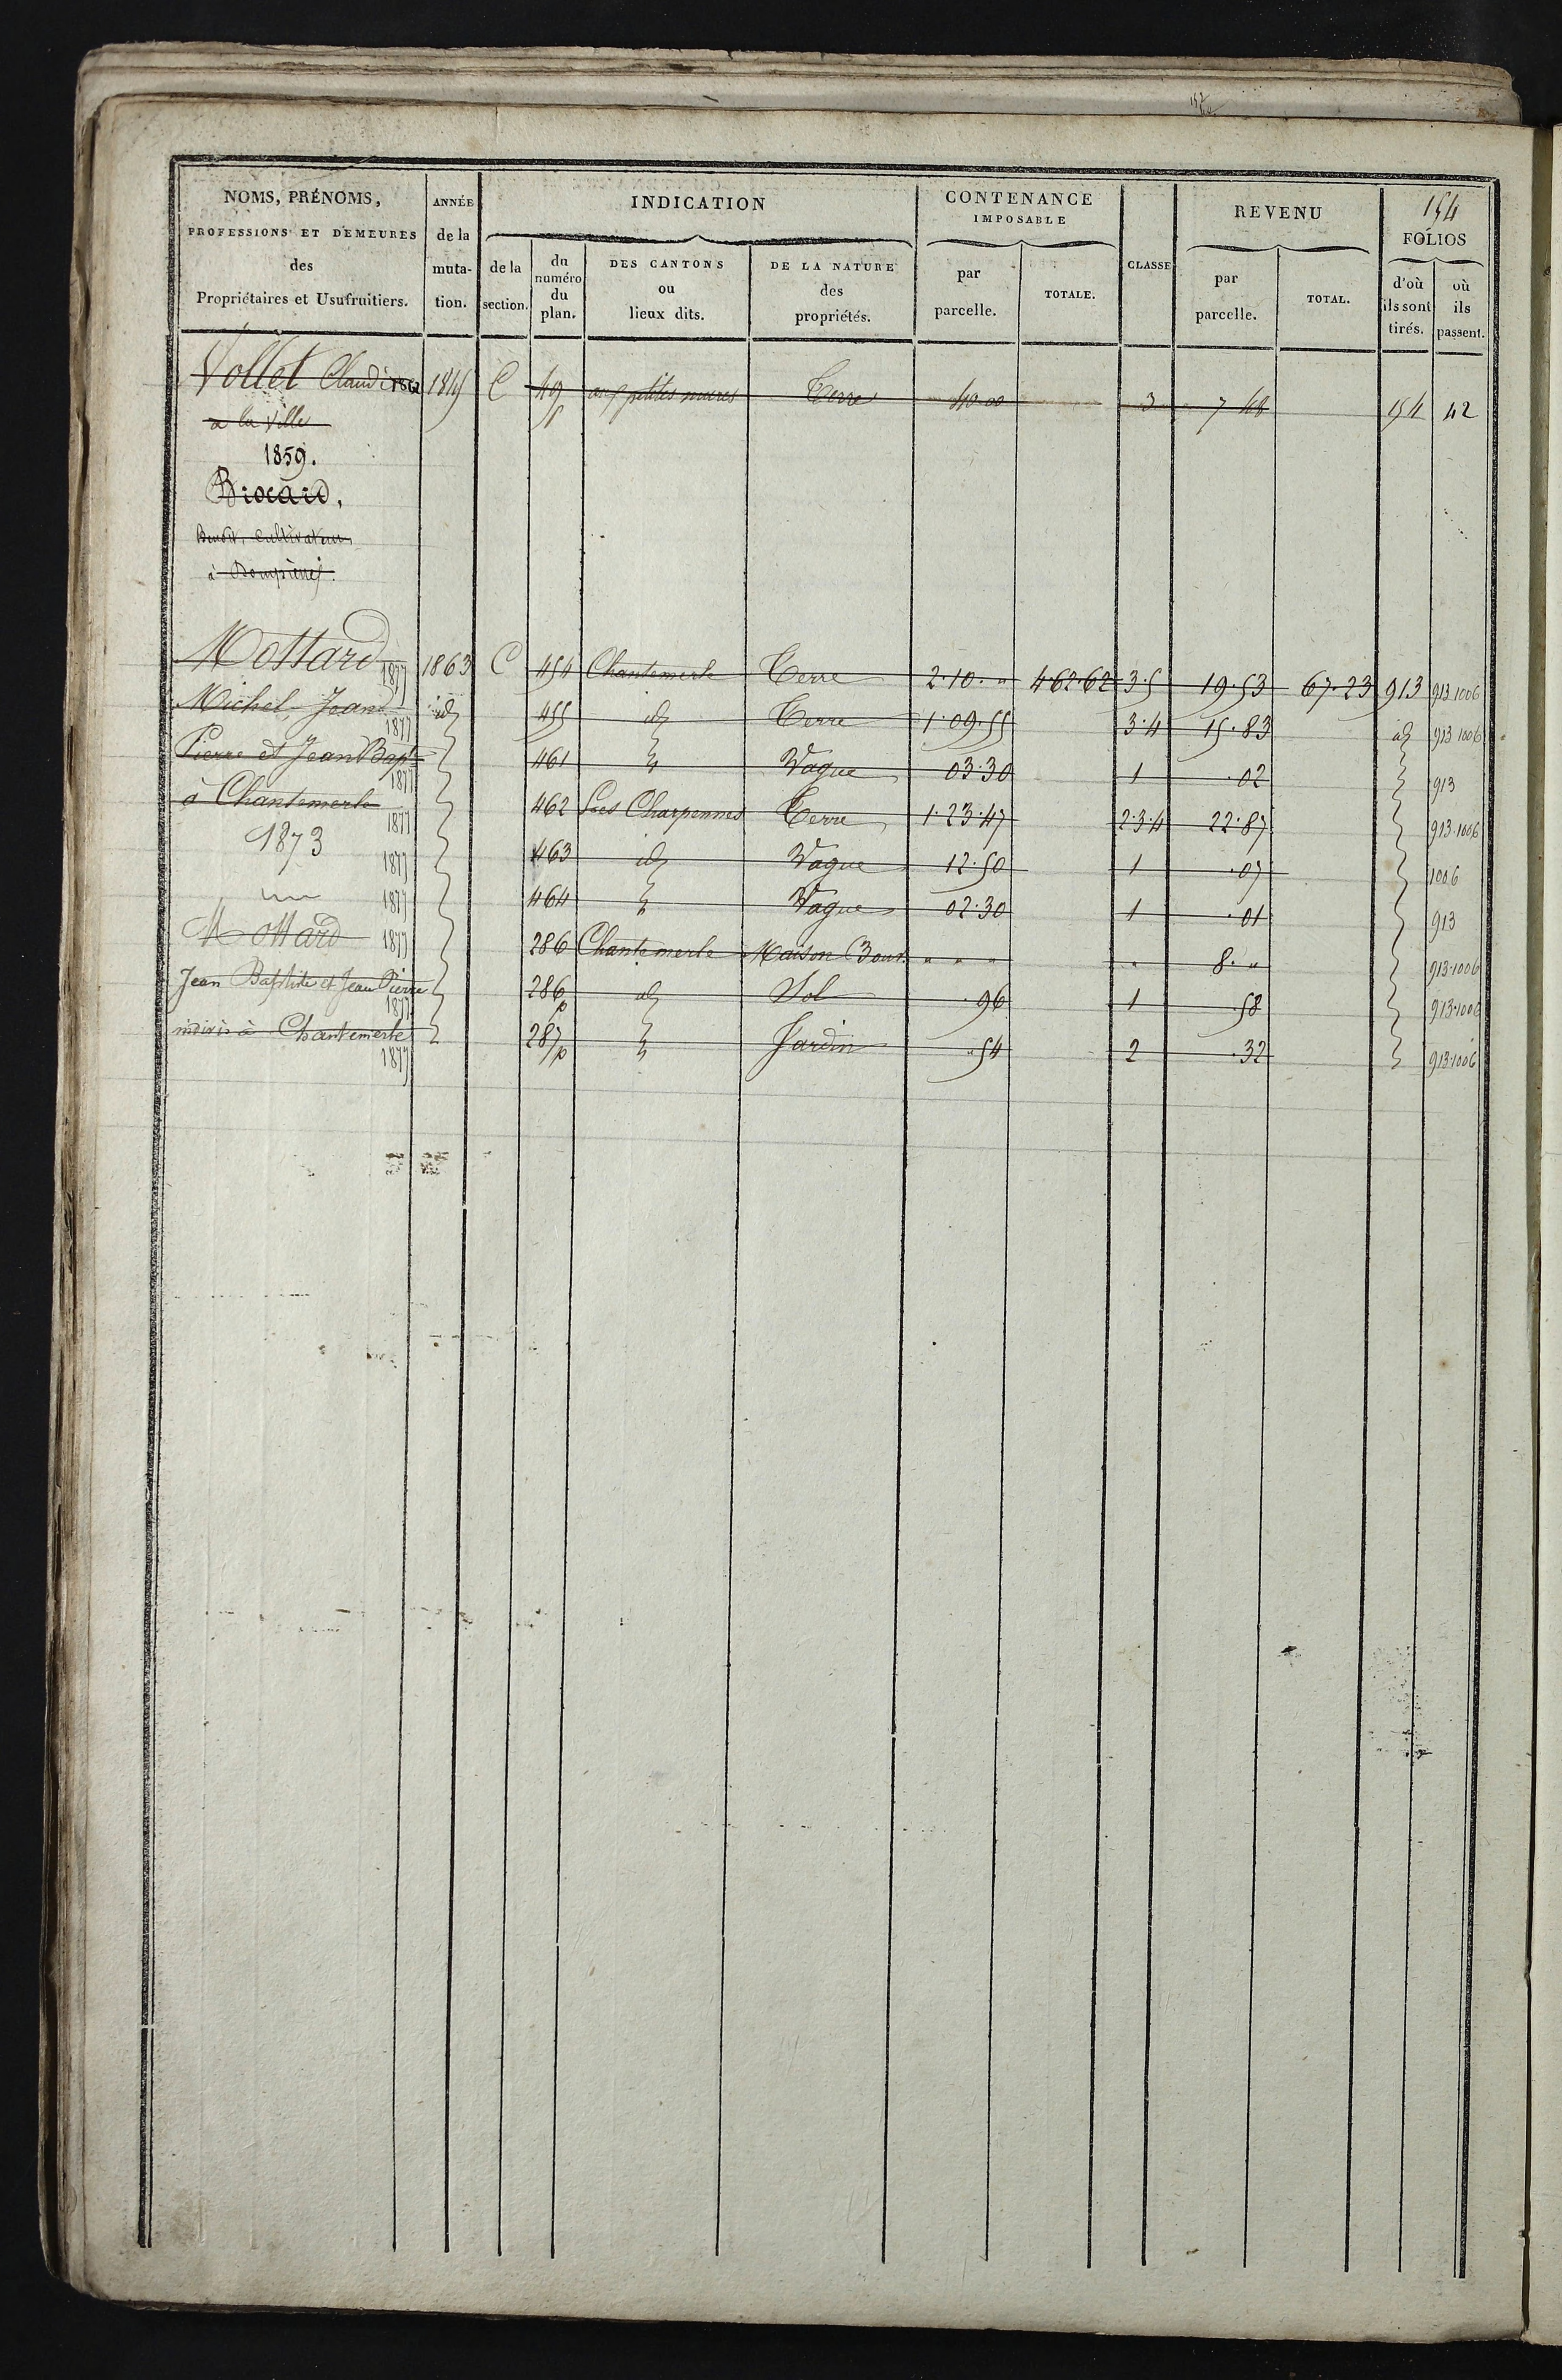 154
NOMS, PRÉNOMS, PROFESSIONS ET DEMEURES des Propriétaires et Usufruitiers. ANNÉE de la mutation. INDICATION de la section. du numéro du plan. DES CANTONS ou lieux dits. DE LA NATURE des propriétés. CONTENANCE IMPOSABLE par parcelle. TOTALE. CLASSE REVENU par parcelle. TOTAL. FOLIOS d'où ils sont tirés. où ils passent.
Vollet Claude 1862 C 49 p aux petites mures Terre 40 00 3 7 48 154 42
a la Ville
1859.
Brocard,
Benoit, cultivateur
à Dompierre.
Mottard 1877 1863 C 454 Chantemerle Terre 2.10. " 462.62 3.5 19.53 67.23 913 913.1006
Michel, Jean 1877 id 455 id Terre 1.09.55 3.4 15.83 id 913 1006
Pierre et Jean Bapte 1877 461 " Vague 03.30 1 .02 913
à Chantemerle 1877 462 Les Charpennes Terre 1.23.47 2.3.4 22.87 913.1006
1873 1877 463 id Vague 12.50 1 .07 1006
1877 464 " Vague 02.30 1 .01 913
Mottard 1877 286 Chantemerle Maison " " " " 8. " 913.1006
Jean Baptiste et Jean Pierre 1877 286 p id Sol .96 1 .58 913.1006
indivis à Chantemerle 1877 287 p " Jardin .54 2 .32 913.1006